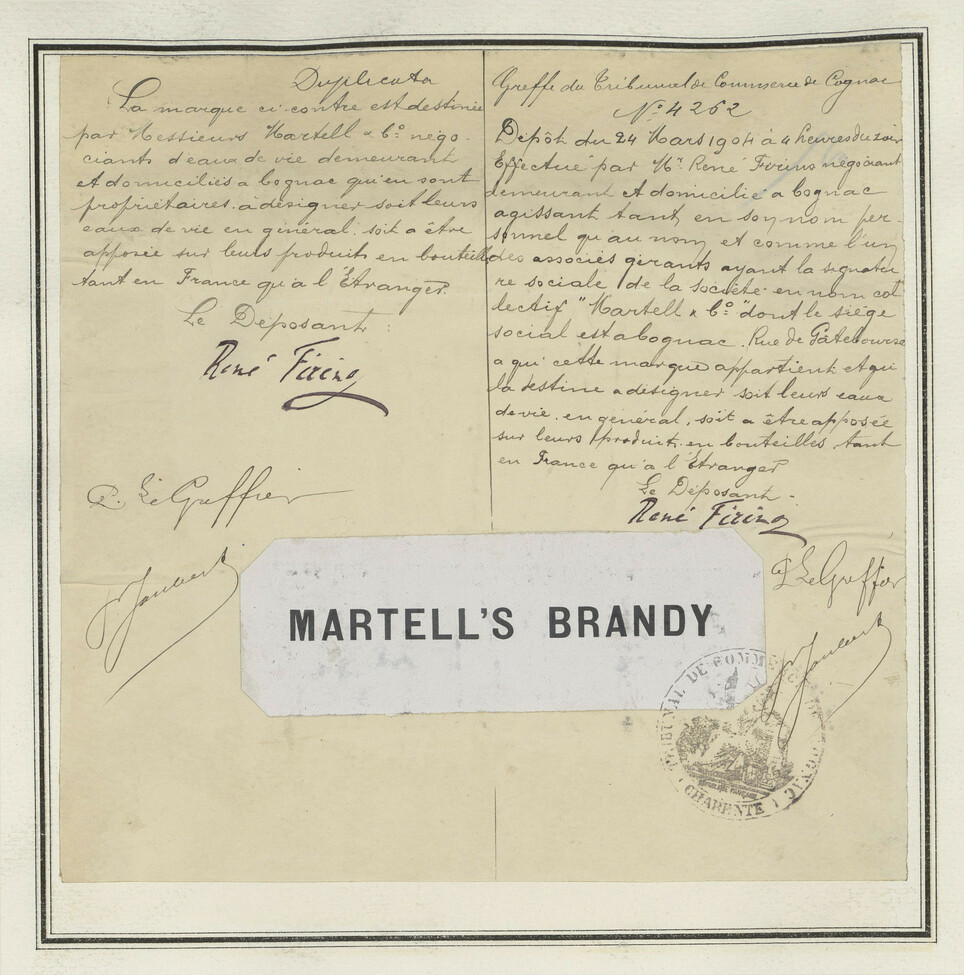 Duplicata
La marque ci-contre est destinée
par Messieurs Martell & Cº négo-
ciants d'eaux de vie demeurant
et domiciliés a Cognac qui en sont
propriétaires. à désigner soit leurs
eaux de vie en général. soit a être
apposée sur leurs produits en bouteilles
tant en France qu'à l'Étranger.
Le Déposant :
René Firino
P. Le Greffier
Greffe du Tribunal de Commerce de Cognac
Nº 4262
Dépôt du 24 Mars 1904 à 4 heures du soir
Effectué par Mr. René Firino négociant
demeurant et domicilié a Cognac
agissant tant en son nom per-
sonnel qu'au nom et comme l'un
des associés gérants ayant la signatu
re sociale de la société en nom col
lectif "Martell & Cº" dont le siège
social est a Cognac. Rue de Gâtebourse
a qui cette marque appartient et qui
la destine a désigner soit leurs eaux
de vie en général, soit a être apposée
sur leurs produits en bouteilles tant
en France qu'a l'Étranger
Le Déposant -
René Firino
P. Le Greffier
MARTELL'S BRANDY
TRIBUNAL DE COMMERCE DE COGNAC
RÉPUBLIQUE FRANÇAISE
CHARENTE